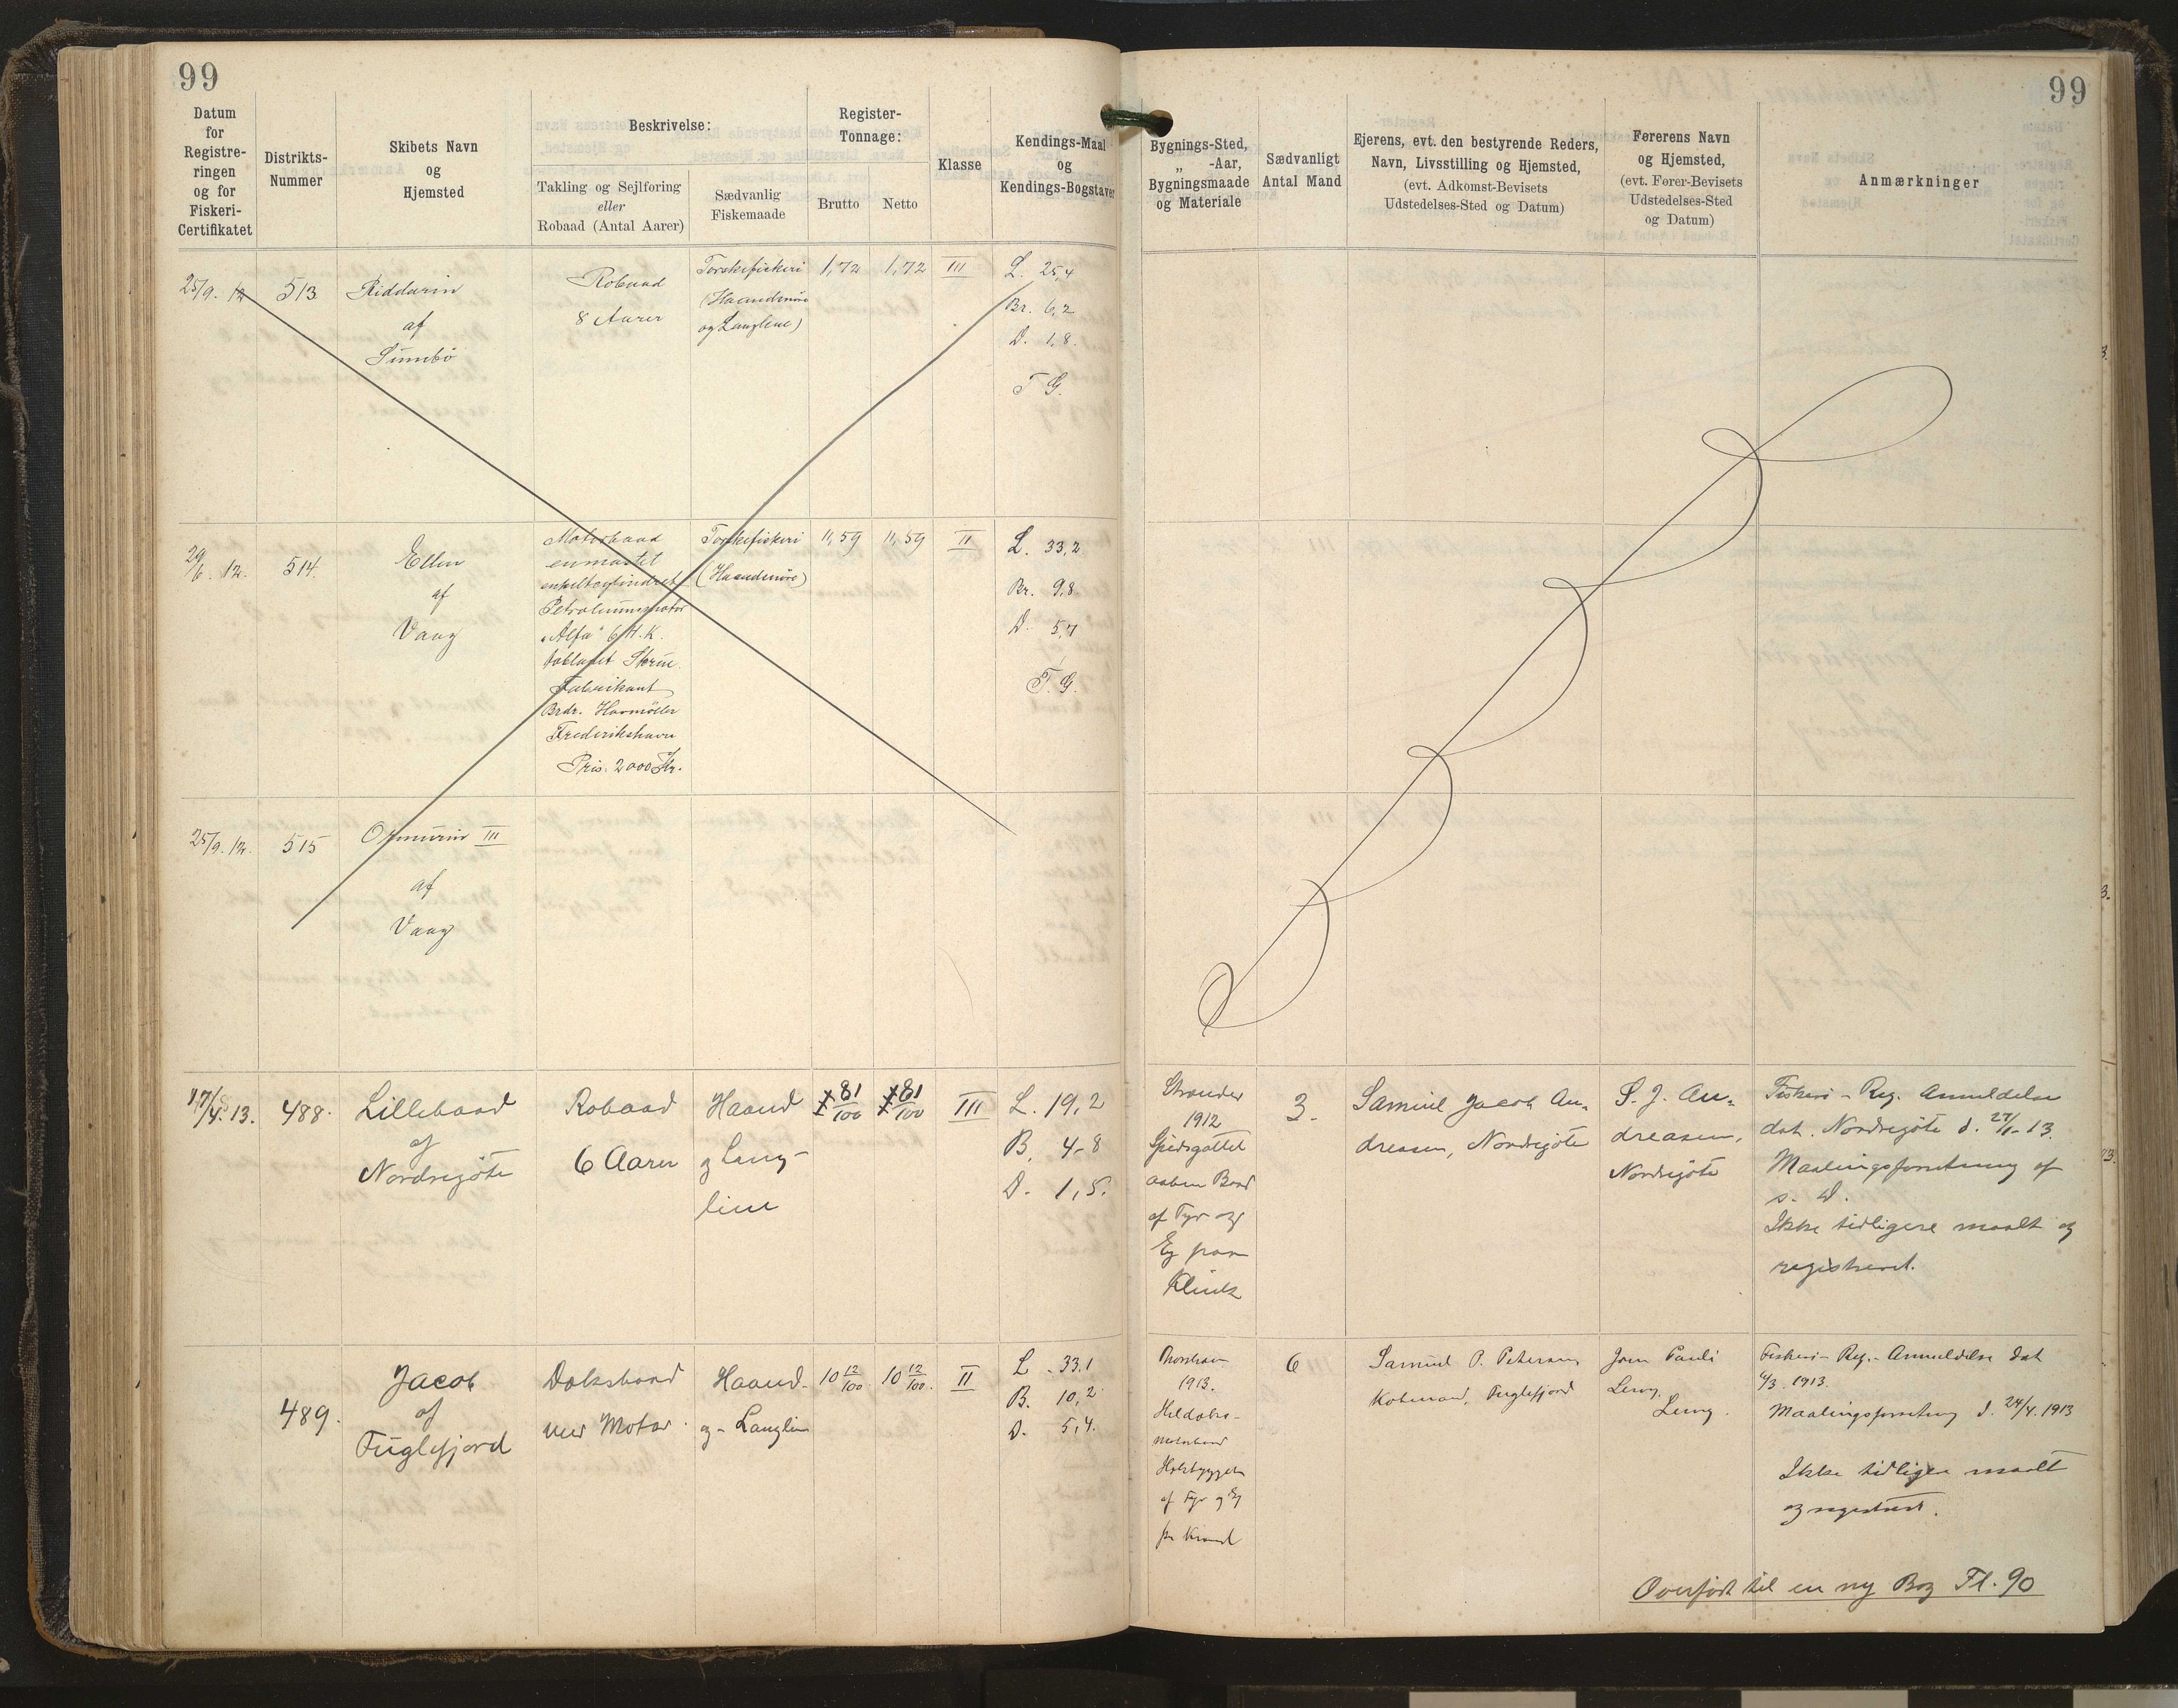 99
99
Datum
for
Registre-
ringen
og for
Fiskeri-
Certifikatet
Distrikts-
Nummer
Skibets Navn
og
Hjemsted
Beskrivelse:
Takling og Sejlføring
eller
Robaad (Antal Aarer)
Sædvanlig
Fiskemaade
Register-
Tonnage:
Brutto
Netto
Klasse
Kendings-Maal
og
Kendings-Bogstaver
Bygnings-Sted,
„ -Aar,
Bygningsmaade
og Materiale
Sædvanligt
Antal Mand
Ejerens, evt. den bestyrende Reders,
Navn, Livsstilling og Hjemsted,
(evt. Adkomst-Bevisets
Udstedelses-Sted og Datum)
Førerens Navn
og Hjemsted,
(evt. Fører-Bevisets
Udstedelses-Sted
og Datum)
Anmærkninger
25/9. 12
513
Riddarin
af
Sumbö
Robaad
8 Aarer
Torskefiskeri
(Haandsnöre
og Langline)
1,72
1,72
III
L. 25,4
Br. 6,2
D. 1,8.
T G.
29/6. 12.
514.
Ellen
af
Vaag
Motorbaad
enmastet
enkeltcylindret
Petroleumsmotor
"Alfa" 6 H.K.
tobladet Skrue.
Fabrikant
Brdr. Houmöller
Frederikshavn
Pris. 2000 Kr.
Torskefiskeri
(Haandsnöre)
11,59
11,59
II
L. 33,2
Br. 9,8
D. 5,7
T. G.
25/9. 12.
515
Ormurin III
af
Vaag
17/4. 13.
488.
Lillebaad
af
Nordregöte
Robaad
6 Aarer
Haand
og Lang-
line
81/100
81/100
III
L. 19,2
B. 4-8
D. 1,5.
Strender
1912
Spidsgattet
aaben Baad
af Fyr og
Eg paa
Klink
3.
Samuel Jacob An-
dreasen, Nordregöte
S. J. An-
dreasen,
Nordregöte
Fiskeri-Reg. Anmeldelse
dat. Nordregöte d. 27/1-13.
Maalingsforretning af
s. D.
Ikke tidligere maalt og
registreret.
489.
Jacob
af
Fuglefjord
Dæksbaad
med Motor
Haand-
og Langline
10 12/100
10 12/100.
II
L. 33.1
B. 10,2
D. 5,4.
Thorshavn
1913.
Heldæks-
motorbaad
af Fyr og Eg
paa Kravel
6
Samuel P. Petersen,
Købmand, Fuglefjord
Joen Pauli
Fiskeri-Reg.-Anmeldelse dat
4/3. 1913.
Maalingsforretning d. 24/4. 1913
Ikke tidligere maalt
og registreret.
Overført til en ny Bog Fl. 90